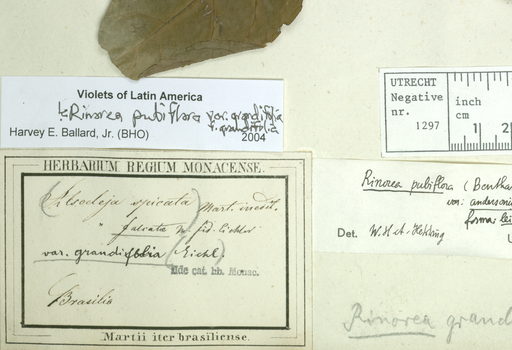 Violets of Latin America
Rinorea pubiflora var. grandifolia
f. grandifolia
Harvey E. Ballard, Jr. (BHO) 2004
UTRECHT
Negative
nr.
1297
inch
cm
1
HERBARIUM REGIUM MONACENSE.
Alsodeja spicata Mart. inedit.
" falcata m. fid. Eichler
var. grandifolia Eichl.
fide cat. hb. Monac.
Brasilia
Martii iter brasiliense.
Rinorea pubiflora (Benth
var. andersoni
forma
Det. W.H.A. Hekking
Rinorea grand